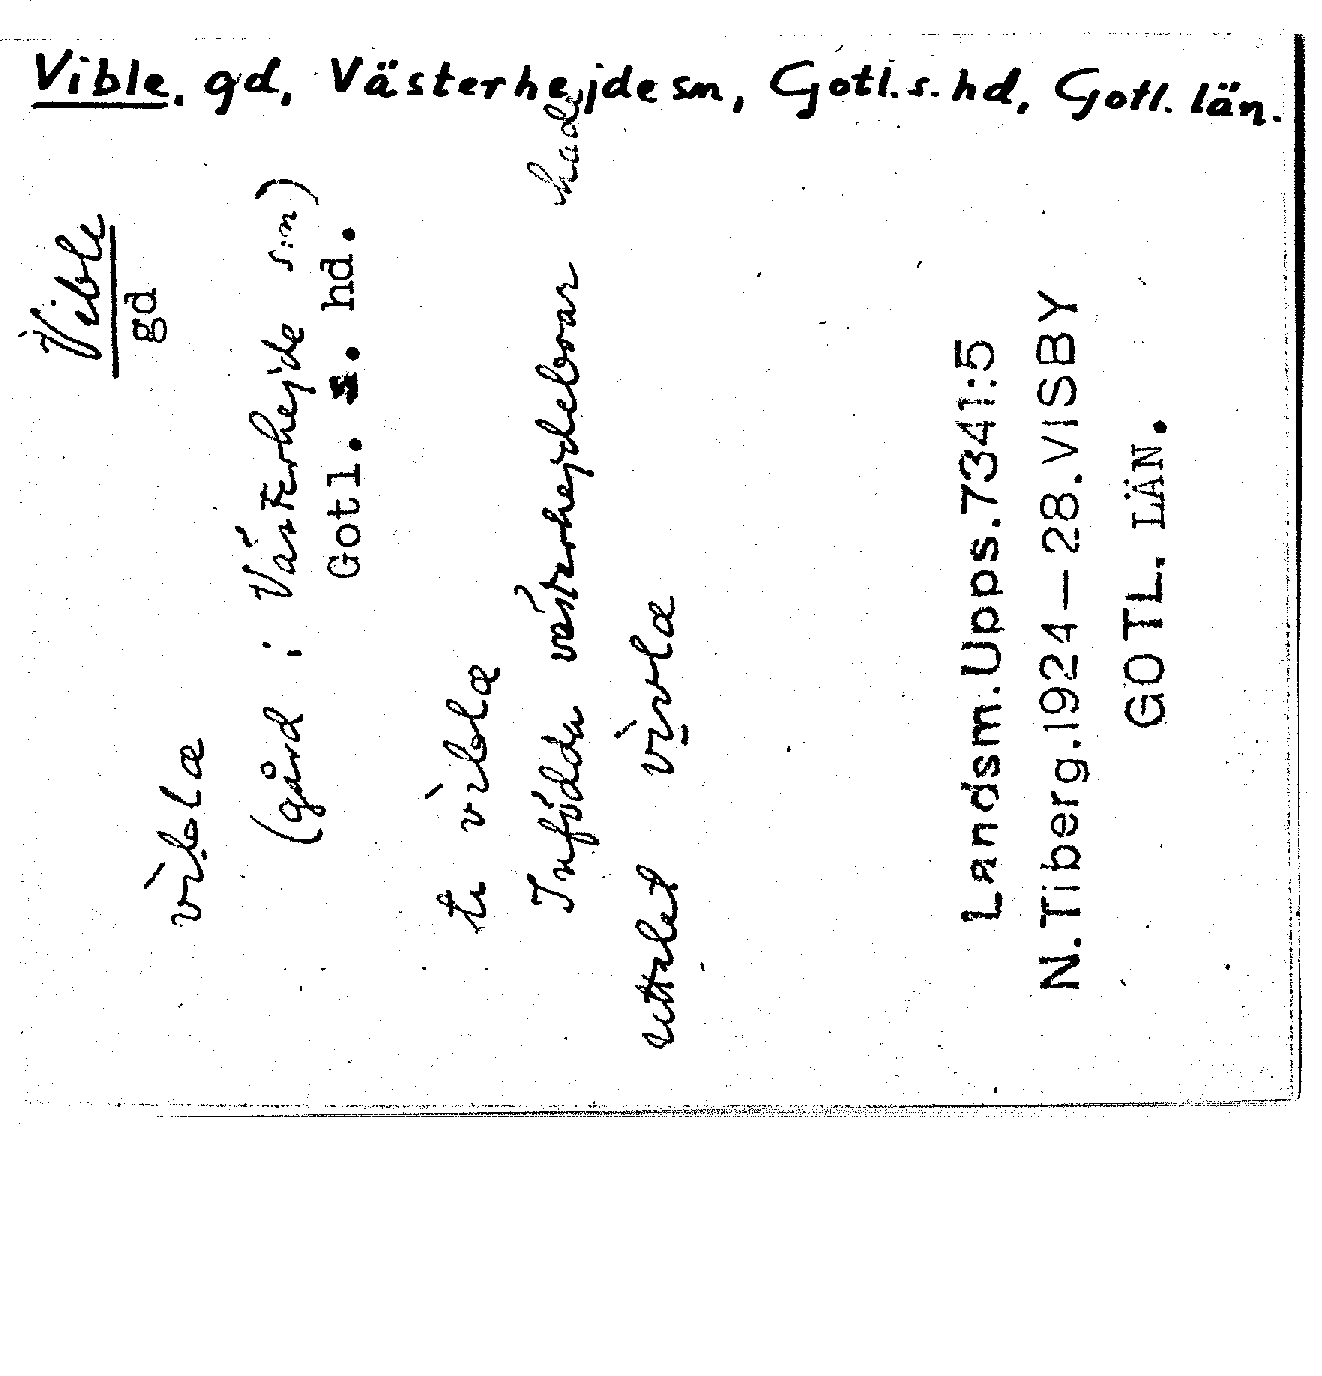 Vible, gd, Västerhejde sn, Gotl. s. hd, Gotl. län.
Vible
gd
vìblæ
(gård i Västerhejde s:n)
Gotl. s. hd.
ti vìblæ
Infödda västerhejdeboar hade
uttalet vìvlæ
Landsm.Upps.7341:5
N.Tiberg.1924-28.VISBY
GOTL. LÄN.